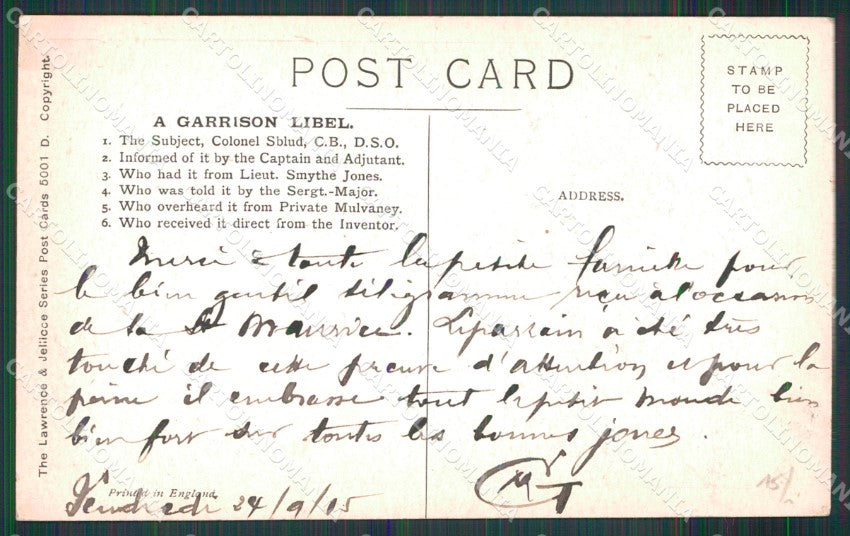 POST CARD
STAMP
TO BE
PLACED
HERE
The Lawrence & Jellicoe Series Post Cards 5001 D. Copyright.
A GARRISON LIBEL.
1. The Subject, Colonel Sblud, C.B., D.S.O.
2. Informed of it by the Captain and Adjutant.
3. Who had it from Lieut. Smythe Jones.
4. Who was told it by the Sergt.-Major.
5. Who overheard it from Private Mulvaney.
6. Who received it direct from the Inventor.
ADDRESS.
Merci à toute la petite famille pour
le bien gentil télégramme reçu à l'occasion
de la St Maurice. Le parrain a été très
touché de cette preuve d'attention et pour la
peine il embrasse tout le petit monde bien
bien fort sur toutes les bonnes joues.
Printed in England.
Vendredi 24/9/15
15/-
CARTOLINOMANIA